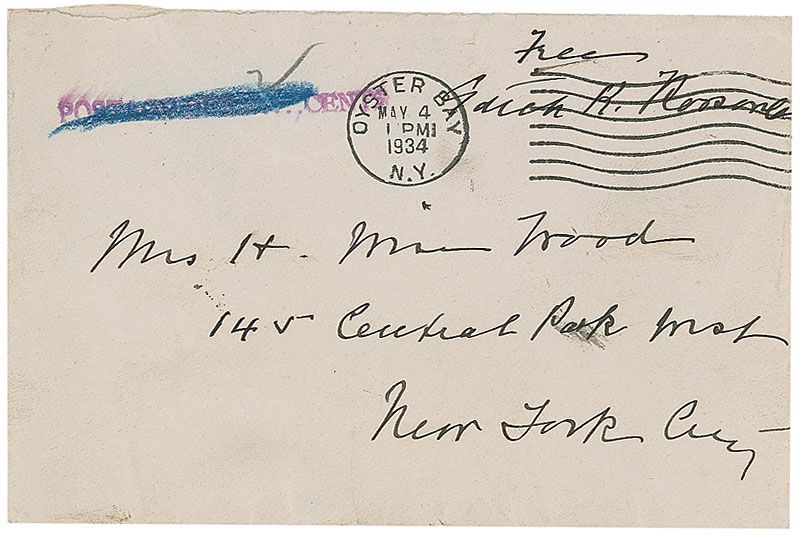 Free
Edith K. Roosevel
POSTAGE CENTS
OYSTER BAY
MAY 4
1 PM
1934
N.Y.
Mrs H. Wise Wood
145 Central Park West
New York City